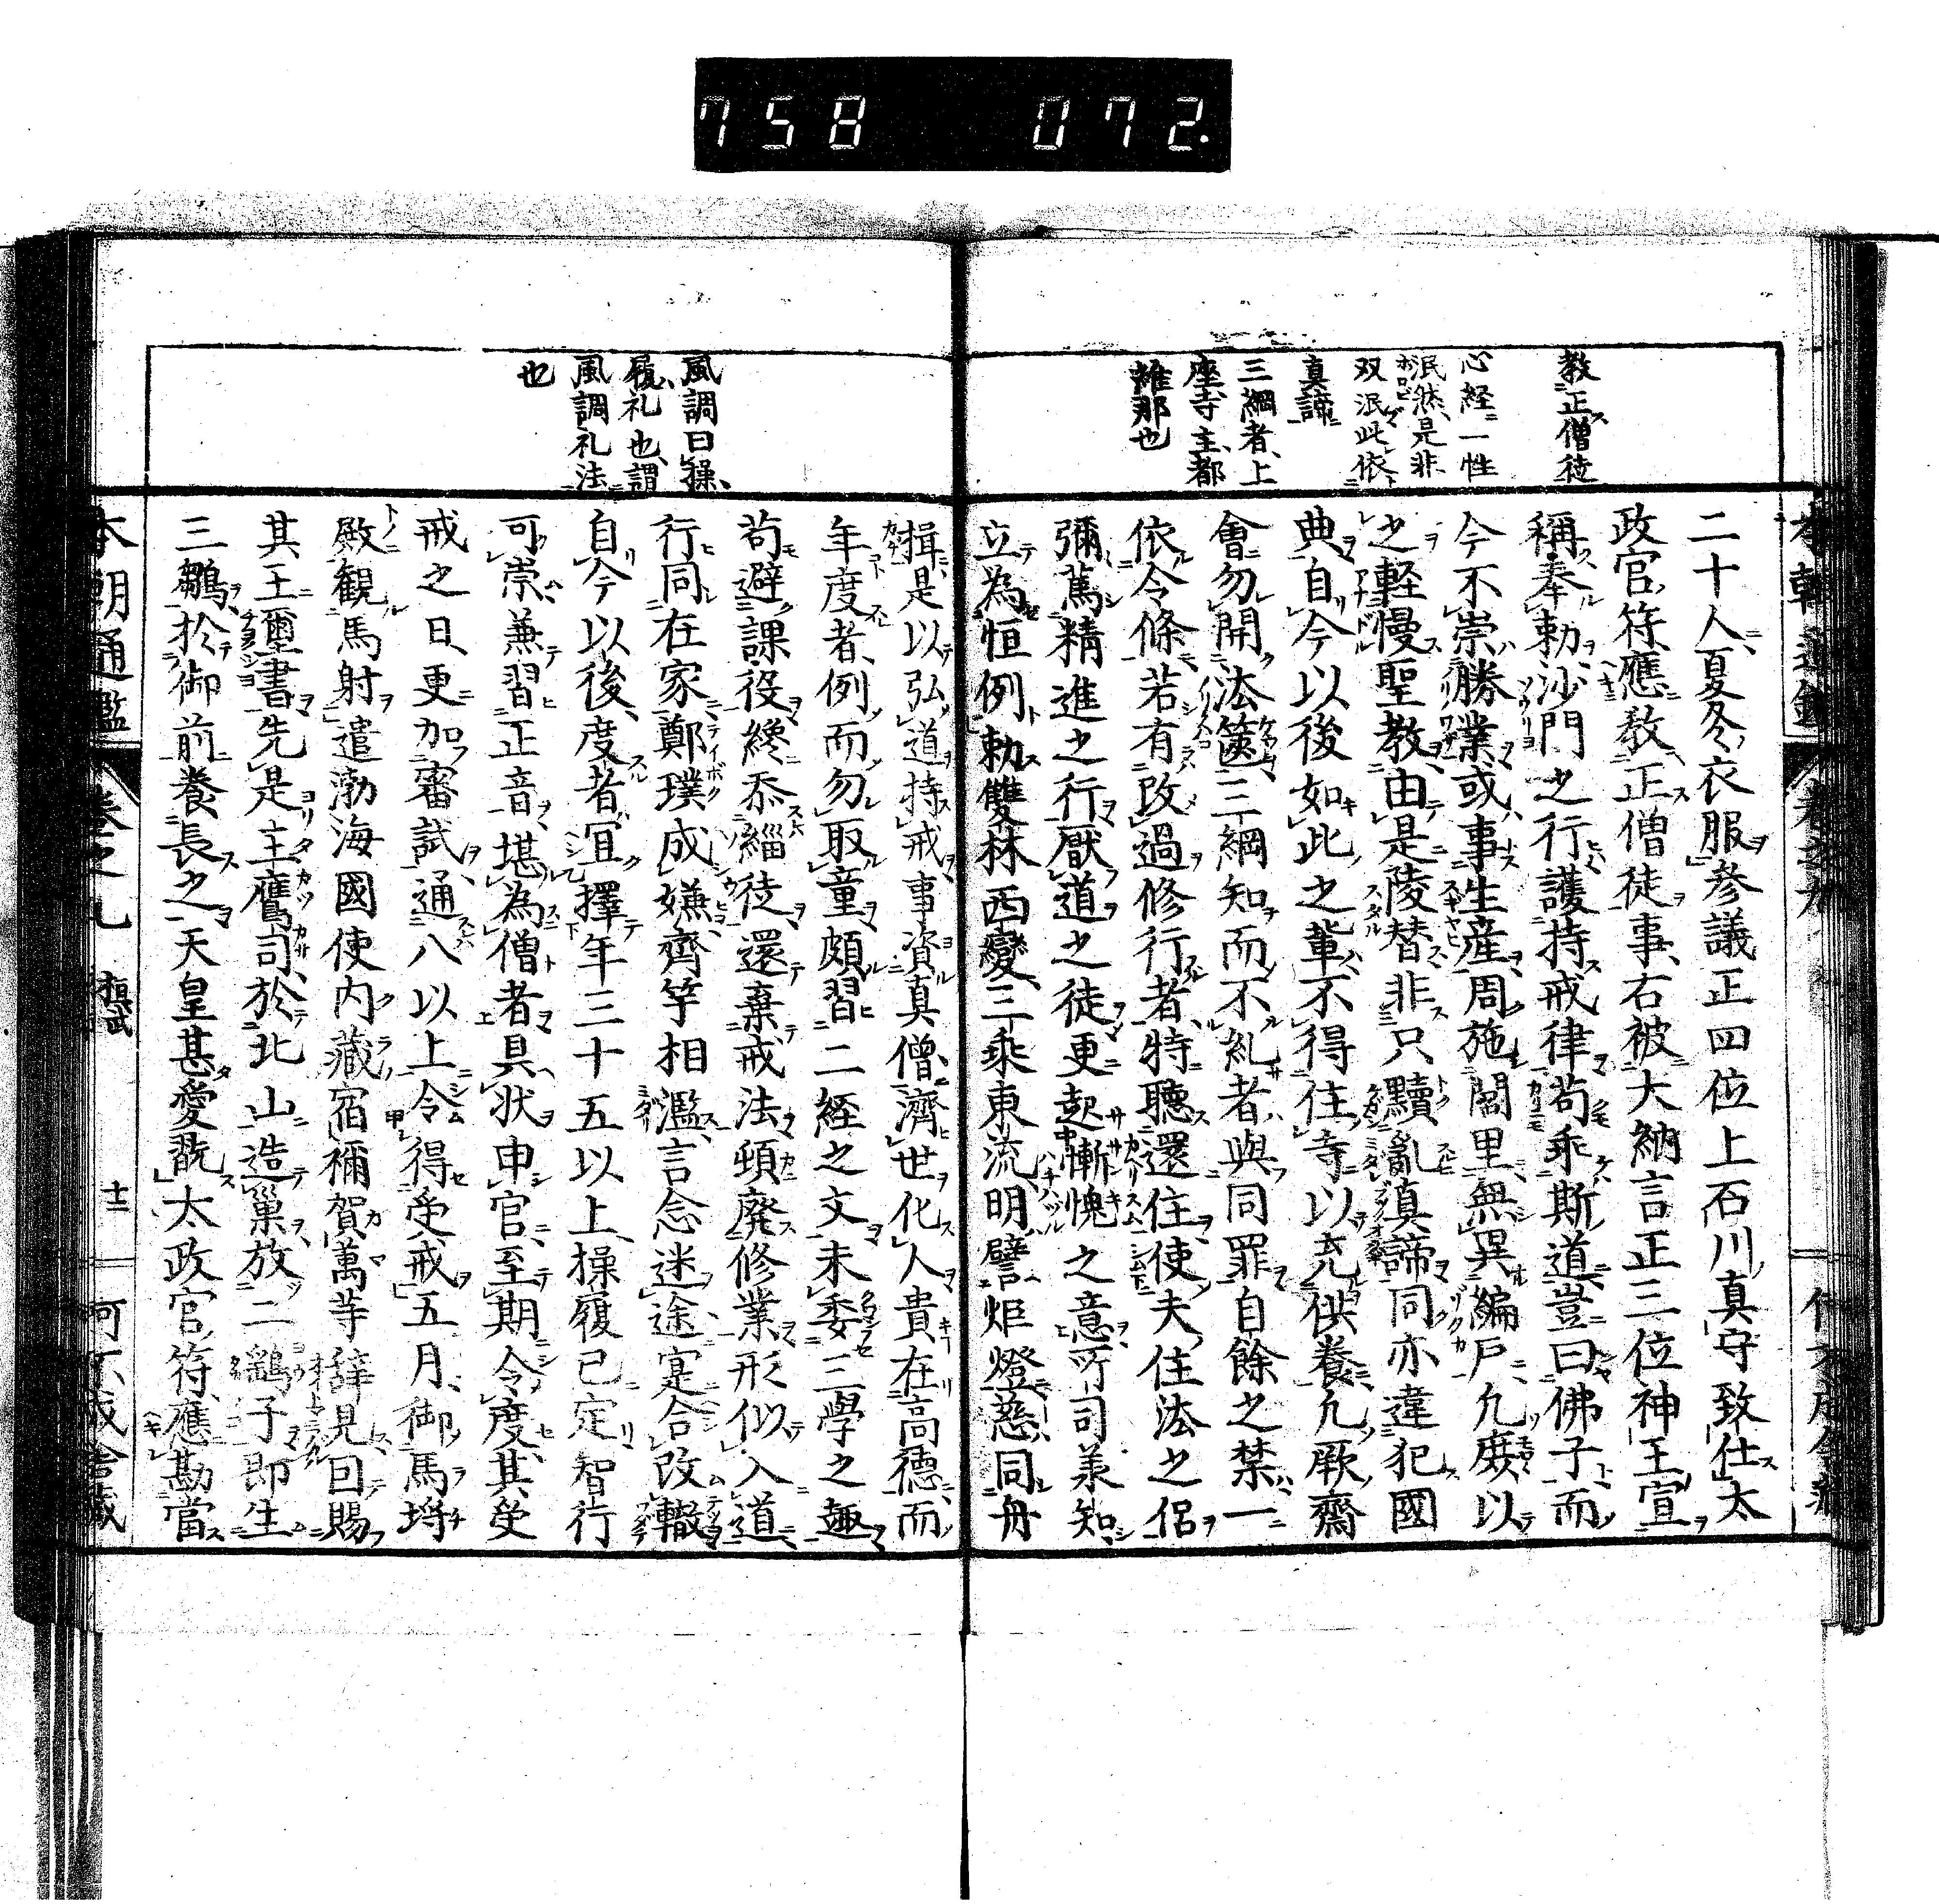 758 072.
教正僧徒
心経一性
泯然是非
双泯此依
真諦
三綱者上
座寺主都
維那也
二十人夏冬衣服参議正四位上石川真守致仕太
政官符應教正僧徒事右被大納言正三位神王宣
稱奉勅沙門之行護持戒律苟乖斯道豈曰佛子而
今不崇勝業或事生産周施閭里無異編戸允庶以
之軽慢聖教由是陵替非只黷亂真諦同亦違犯國
典自今以後如此之輩不得住寺以充供養允厥齋
會勿開法筵三綱知而不糺者與同罪自餘之禁一
依令條若有改過修行者特聽還住使夫住法之侶
彌篤精進之行厭道之徒更起慚愧之意所司承知
立為恒例勅雙林西變三乘東流明譬炬燈慈同舟
風調曰操
履礼也謂
風調礼法
也
揖是以弘道持戒事資真僧濟世化人貴在高德而
年度者例而勿取童頗習二経之文未委三學之趣
苟避課役纔忝緇徒還棄戒法頓廃修業形似入道
行同在家鄭璞成嫌齊竽相濫言念迷途寔合改轍
自今以後度者冝擇年三十五以上操履已定智行
可崇兼習正音堪為僧者具状申官至期令度其受
戒之日更加審試通八以上令得受戒五月御馬埒
殿観馬射遣渤海國使内藏宿禰賀萬等辞見回賜
其王璽書先是主鷹司於北山造巣放二鷂子即生
三鶵於御前養長之天皇甚愛翫太政官符應勘當
本朝通鑑 巻之九 桓武 十二